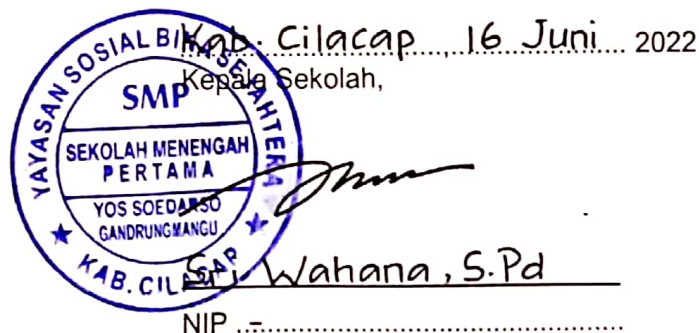 Kab. Cilacap, 16 Juni 2022
Kepala Sekolah,
YAYASAN SOSIAL BINA SEJAHTERA
SMP
SEKOLAH MENENGAH
PERTAMA
YOS SOEDARSO
GANDRUNGMANGU
KAB. CILACAP
Sri Wahana, S.Pd
NIP. -